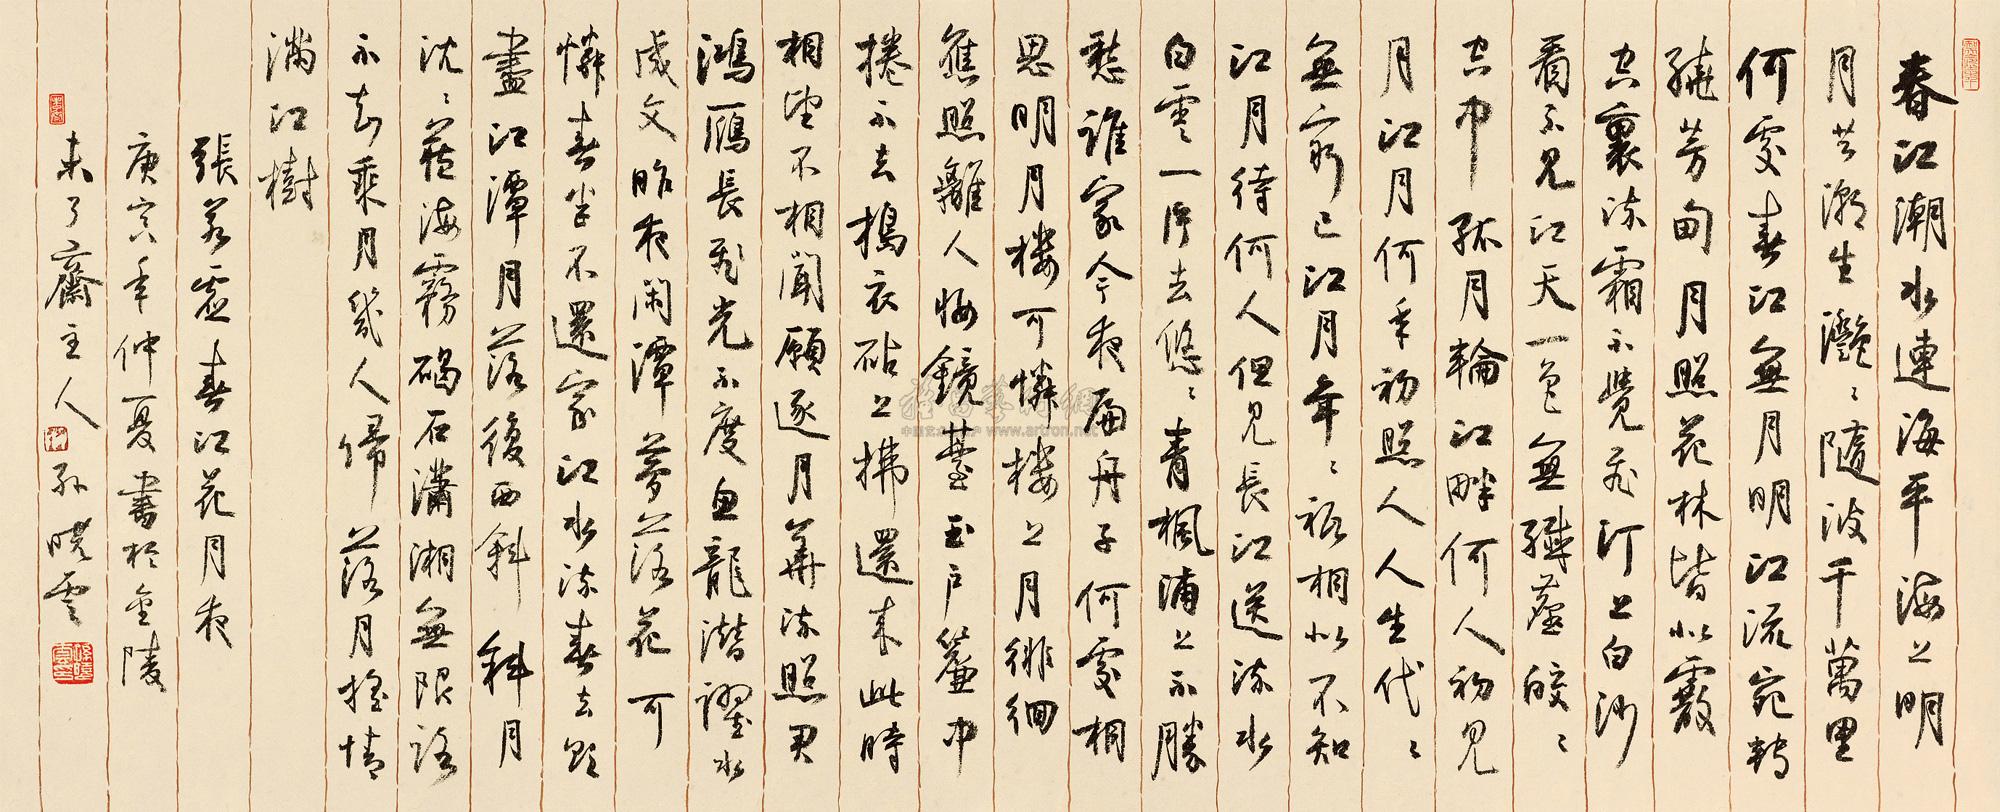 春江潮水連海平海上明
月共潮生灩〻隨波千萬里
何處春江無月明江流宛轉
繞芳甸月照花林皆似霰
空裏流霜不覺飛汀上白沙
看不見江天一色無纖塵皎〻
空中孤月輪江畔何人初見
月江月何年初照人人生代〻
無窮已江月年〻衹相似不知
江月待何人但見長江送流水
白雲一片去悠〻青楓浦上不勝
愁誰家今夜扁舟子何處相
思明月楼可憐楼上月徘徊
應照離人妝鏡臺玉戶簾中
捲不去搗衣砧上拂還來此時
相望不相聞願逐月華流照君
鴻鴈長飛光不度魚龍潛躍水
成文昨夜閑潭夢落花可
憐春半不還家江水流春去欲
盡江潭月落復西斜斜月
沈〻藏海霧碣石瀟湘無限路
不知乘月幾人歸落月搖情
滿江樹
張若虛春江花月夜
庚寅年仲夏書於金陵
未了齋主人孫曉雲
雅昌藝術網
www.artron.net